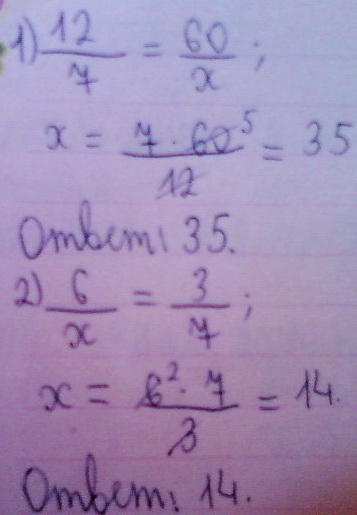 1) 12/7 = 60/x ;
x = 7 · 60⁵/12 = 35
Ответ: 35.
2) 6/x = 3/7 ;
x = 6² · 7/3 = 14.
Ответ: 14.